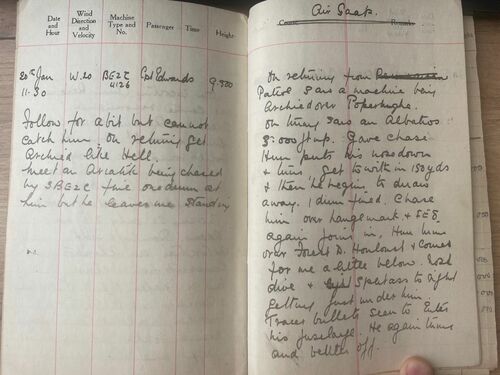 Date and Hour
Wind Direction and Velocity
Machine Type and No.
Passenger
Time
Height
20th Jan
11.30
W.20
BE2C
4126
Cpt Edwards
9.500
Follow for a bit but cannot
catch him. On returning get
Archied like Hell.
meet an Aviatik being chased
by 3 BE2C fire one drum at
him but he leaves me standing
Air Gaap.
Course
Remarks
On returning from
Patrol saw a machine being
Archied over Poperinghe.
On turning saw an Albatros
3.000 ft up. Gave chase
Hun puts his nose down
& turns. Get to within 150 yds
& then he begins to draw
away. 1 drum fired. Chase
him over & FE5
again joins in. Hun turns
over Forest D. Houloust & comes
for me a little below. Nose
dive & Spiral to right
getting just under him
Tracer bullets seen to enter
his fuselage. He again turns
and off.